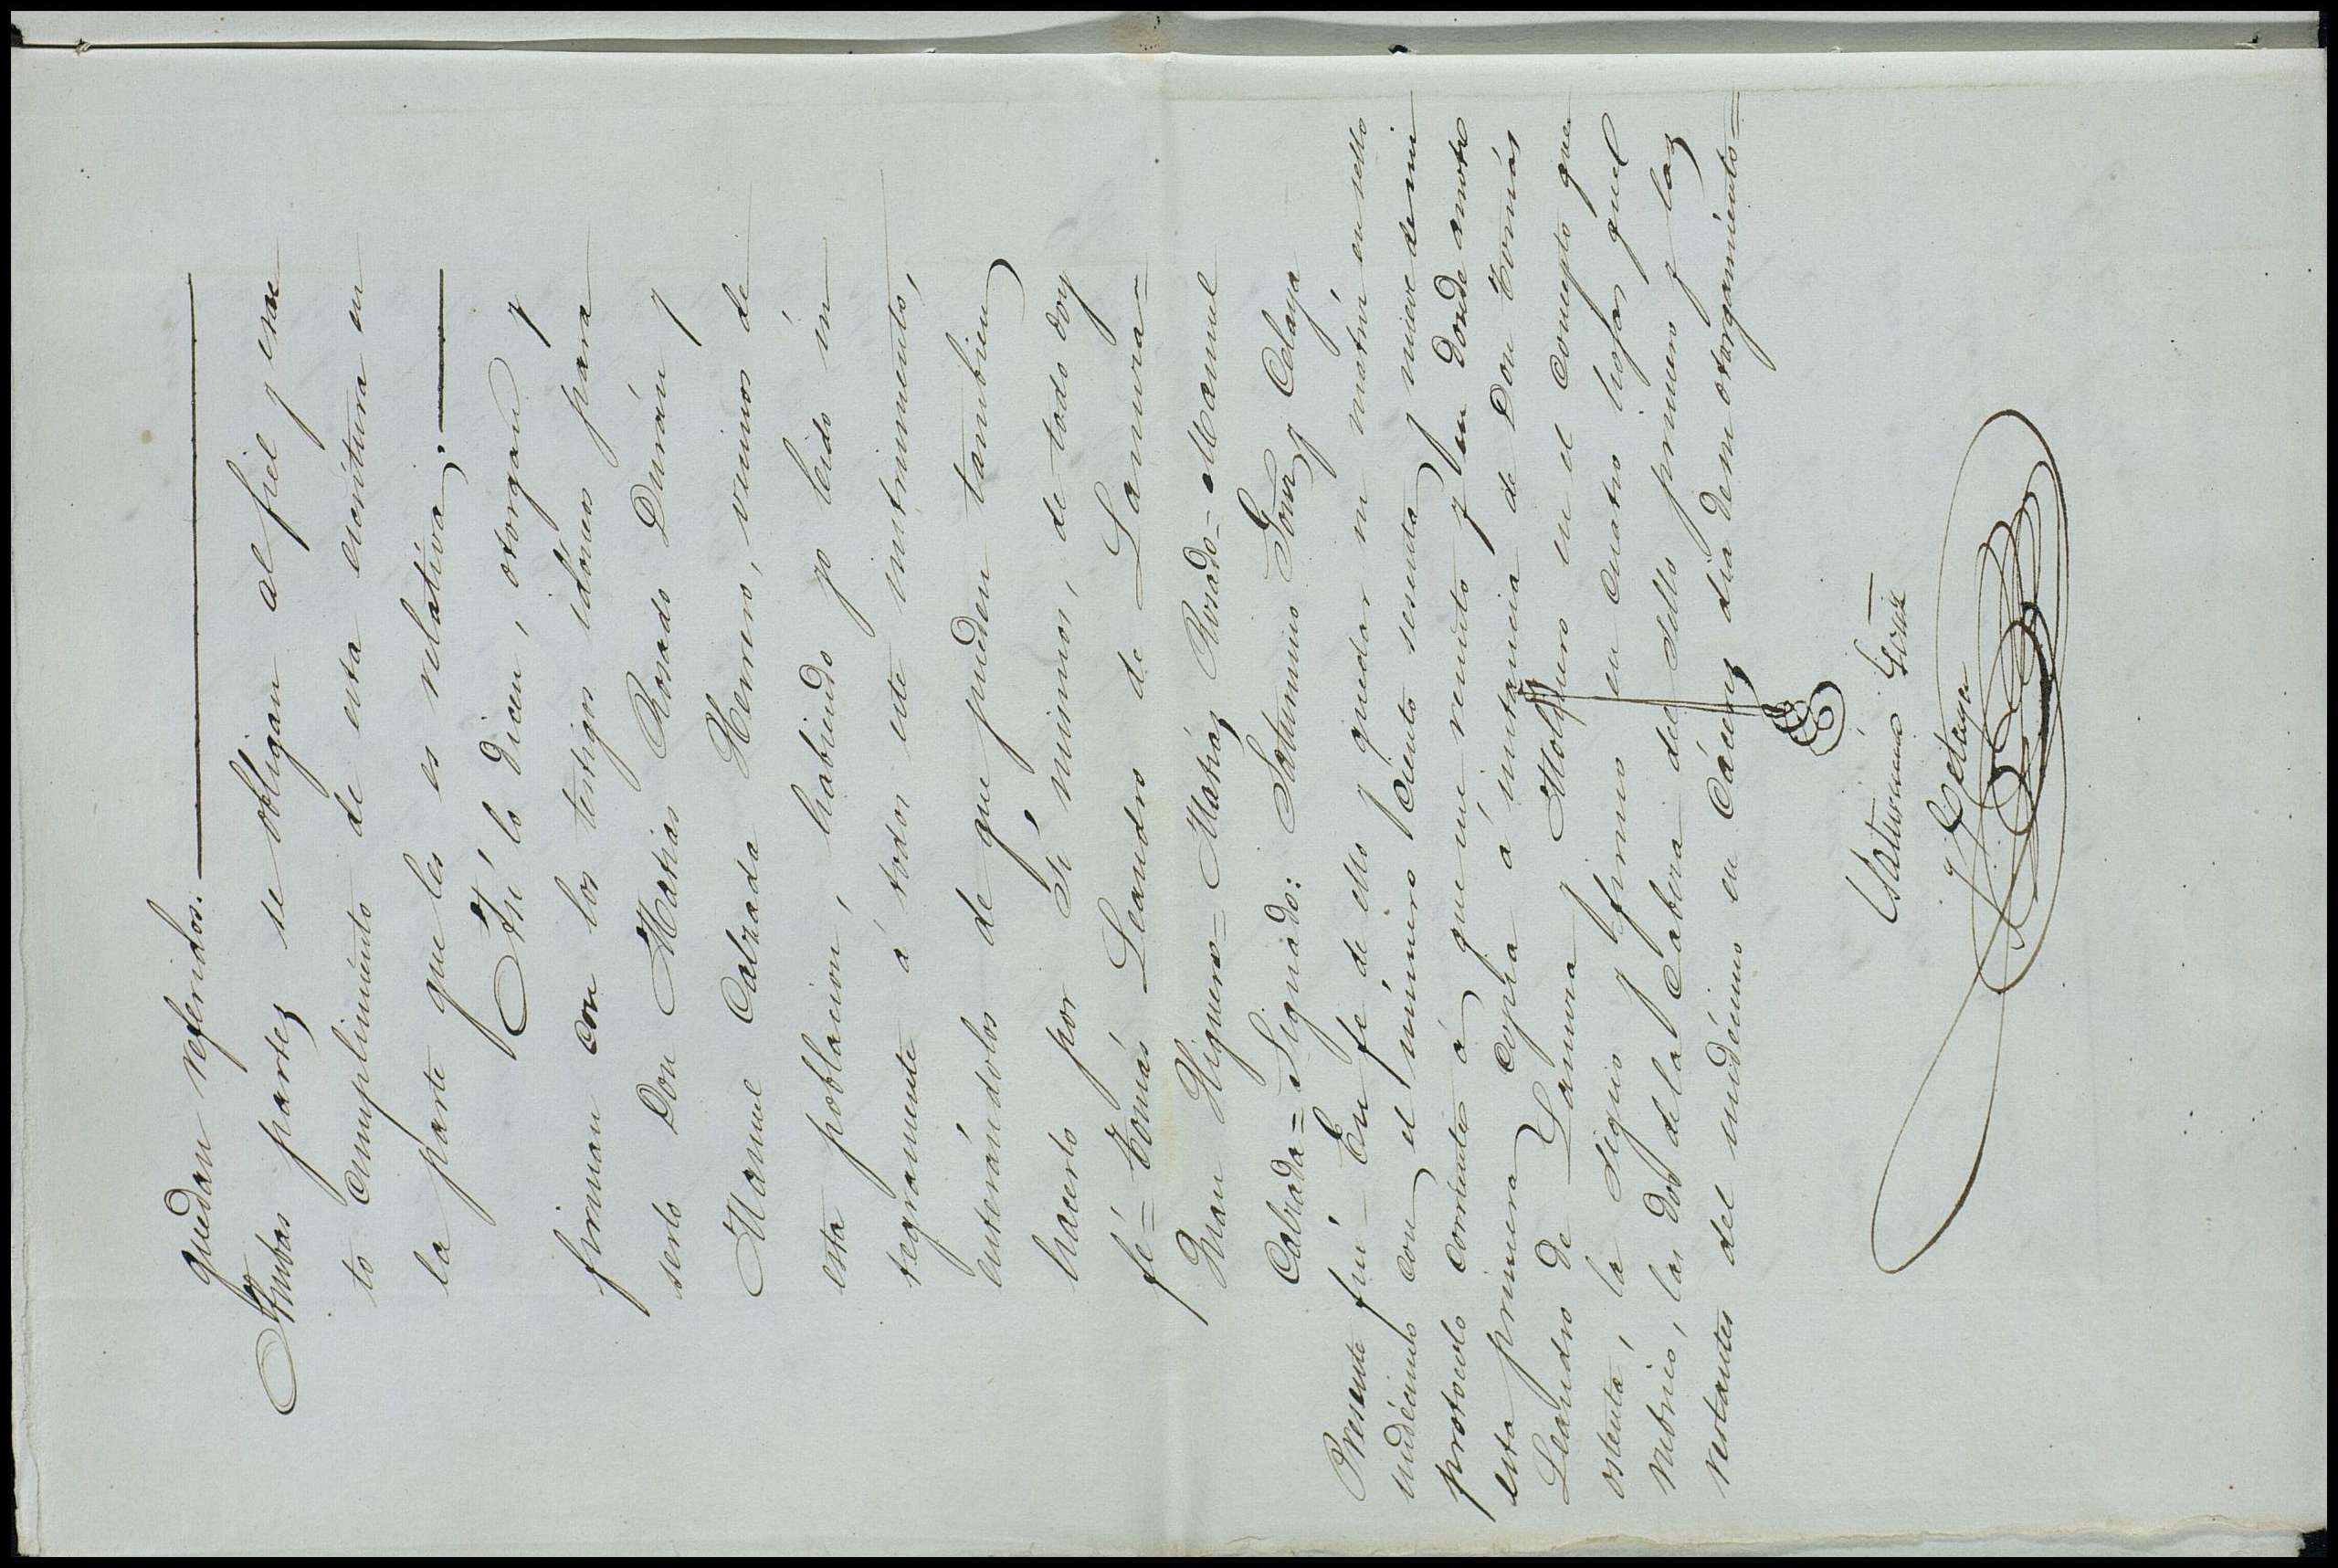 quedan referidos.
Ambas partes se obligan al fiel y exac
to cumplimiento de esta escritura en
la parte que les es relativa.
Así lo dicen, otorgan y
firman con los testigos idóneos para
serlo Don Matias Rosado Durán y
Manuel Calzada Herrero, vecinos de
esta poblacion, habiendo yo leido ín
tegramente á todos este instrumento,
enterándolos de que pueden tambien
hacerlo por Sí mismos, de todo doy
fé = Tomás Leandro de Lamura =
Juan Higuero = Matias Rosado = Manuel
Calzada = Signado: Saturnino Gonz y Celaya
Presente fuí - En fé de ello y quedar su matriz en sello
undécimo con el número ciento sesenta y nueve de mi
protocolo corriente á que me remito y en donde anoto
esta primera copia á instancia de Don Tomás
Leandro de Lamura y Molifuero en el concepto que
ostenta, la signo y firmo en cuatro hojas que
rubrico, las dos de la cabeza del sello primero y las
restantes del undécimo en Cáceres dia de su otorgamiento =
Saturnino Gonz
y Celaya